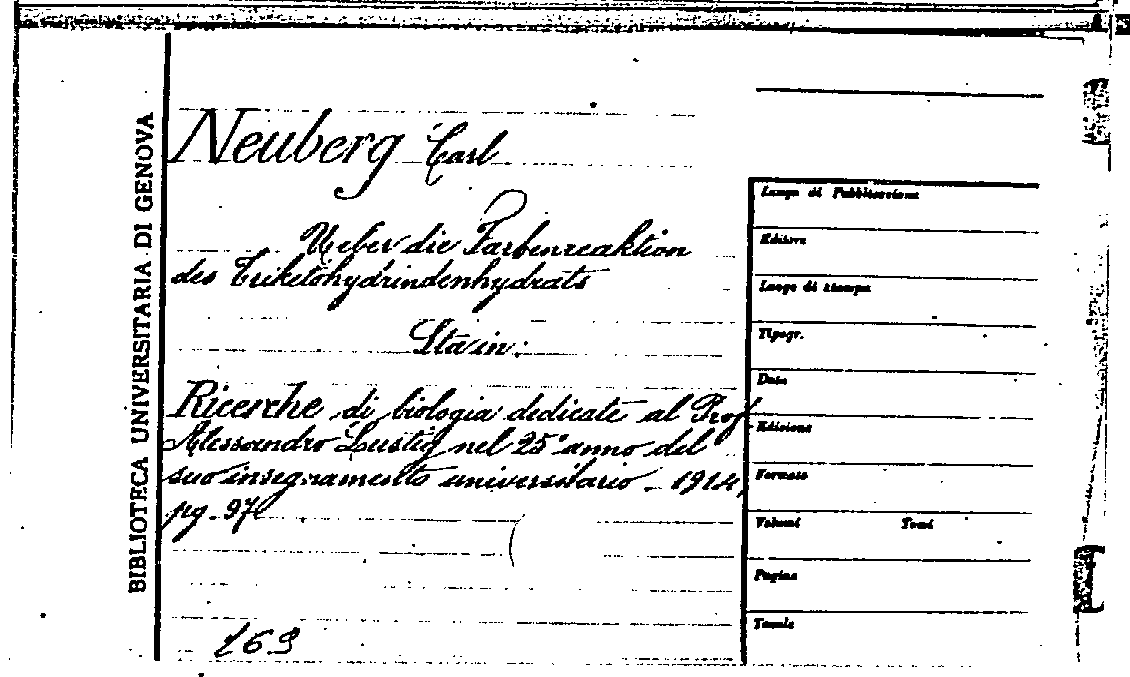 BIBLIOTECA UNIVERSITARIA DI GENOVA
Neuberg Carl
Ueber die Farbenreaktion
des Triketohydrindenhydrats
Sta in:
Ricerche di biologia dedicate al Prof.
Alessandro Lustig nel 25° anno del
suo insegnamento universitario - 1914,
pg. 97
169
Luogo di Pubblicazione
Editore
Luogo di stampa
Tipogr.
Data
Edizione
Formato
Volumi Tomi
Pagine
Tavole